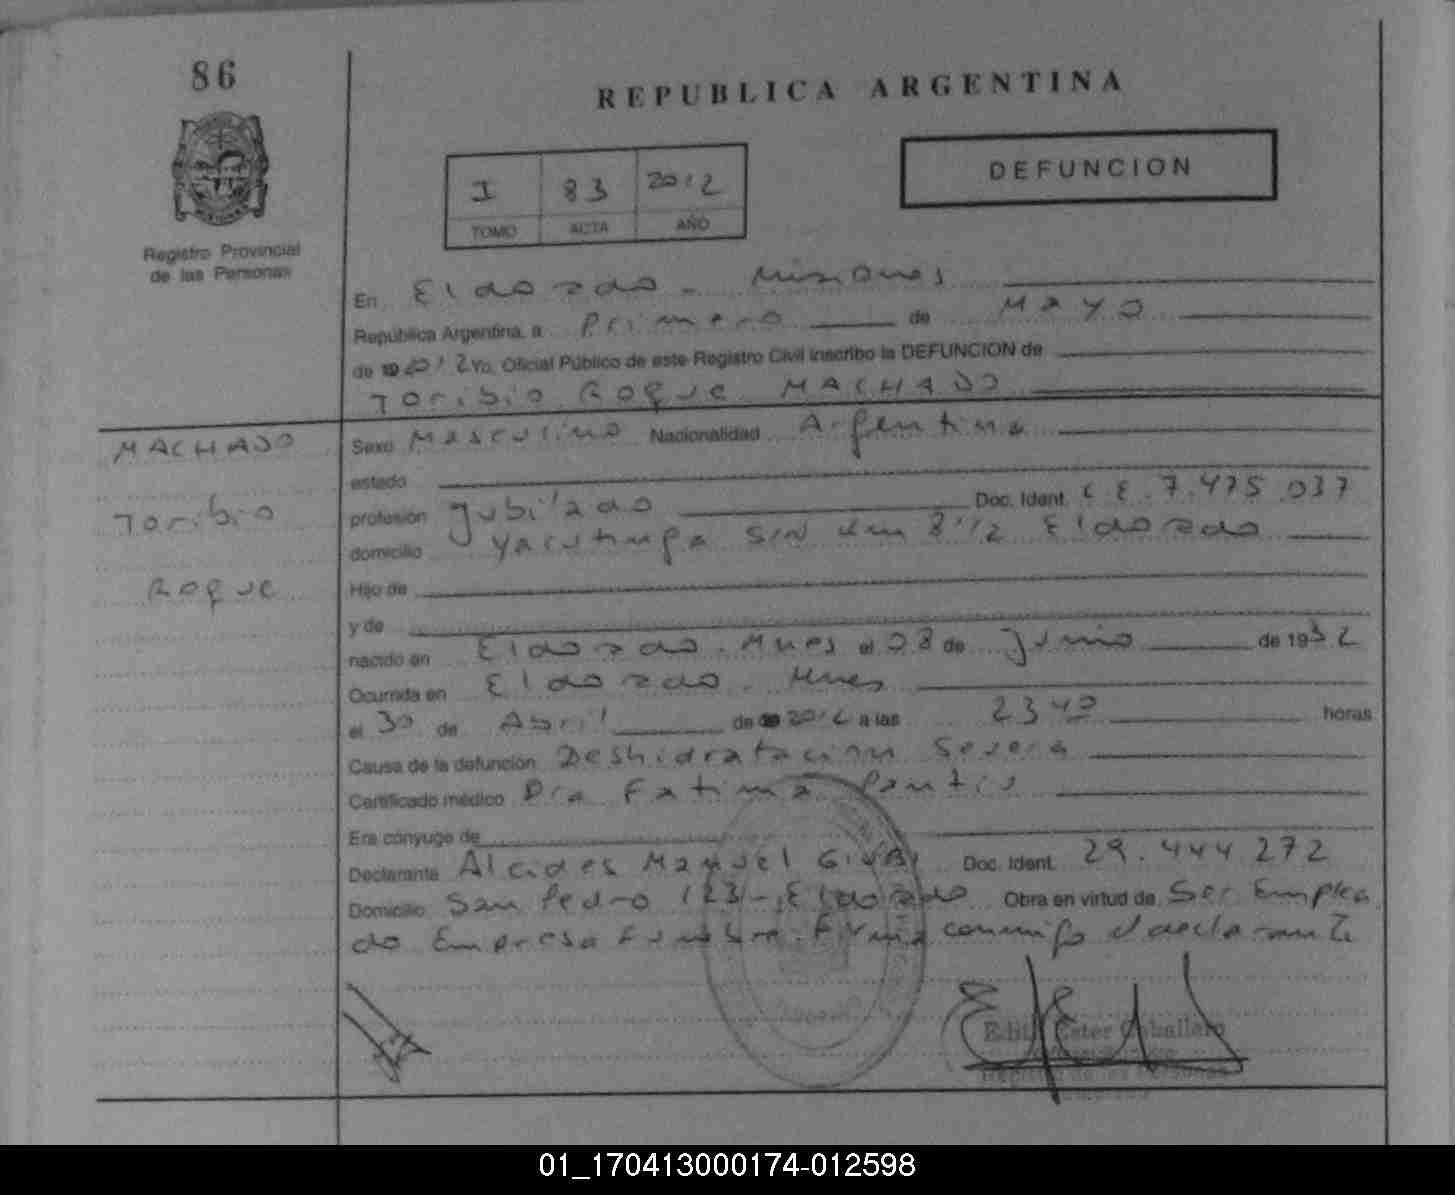 86
REPUBLICA ARGENTINA
DEFUNCION
I 83 2012
TOMO ACTA AÑO
Registro Provincial
de las Personas
En Eldorado - Misiones
República Argentina, a Primero de Mayo
de 2012 Yo, Oficial Público de este Registro Civil inscribo la DEFUNCION de
Toribio Roque MACHADO
MACHADO
Toribio
Roque
Sexo Masculino Nacionalidad Argentina
estado
profesión Jubilado Doc. Ident. 7.475.037
domicilio S/N Km 8 1/2 Eldorado
Hijo de
y de
nacido en Eldorado - Mnes el 28 de Junio de 1932
Ocurrida en Eldorado - Mnes
el 30 de Abril de 2012 a las 2340 horas
Causa de la defunción Deshidratacion Severa
Certificado médico Dra Fatima
Era cónyuge de
Declarante Alcides Manuel Doc. Ident. 29.444.272
Domicilio San Pedro 123 - Eldorado Obra en virtud de Ser Emplea
do Empresa Funebre. Firma conmigo el declarante
Edith Ester Caballero
01_170413000174-012598